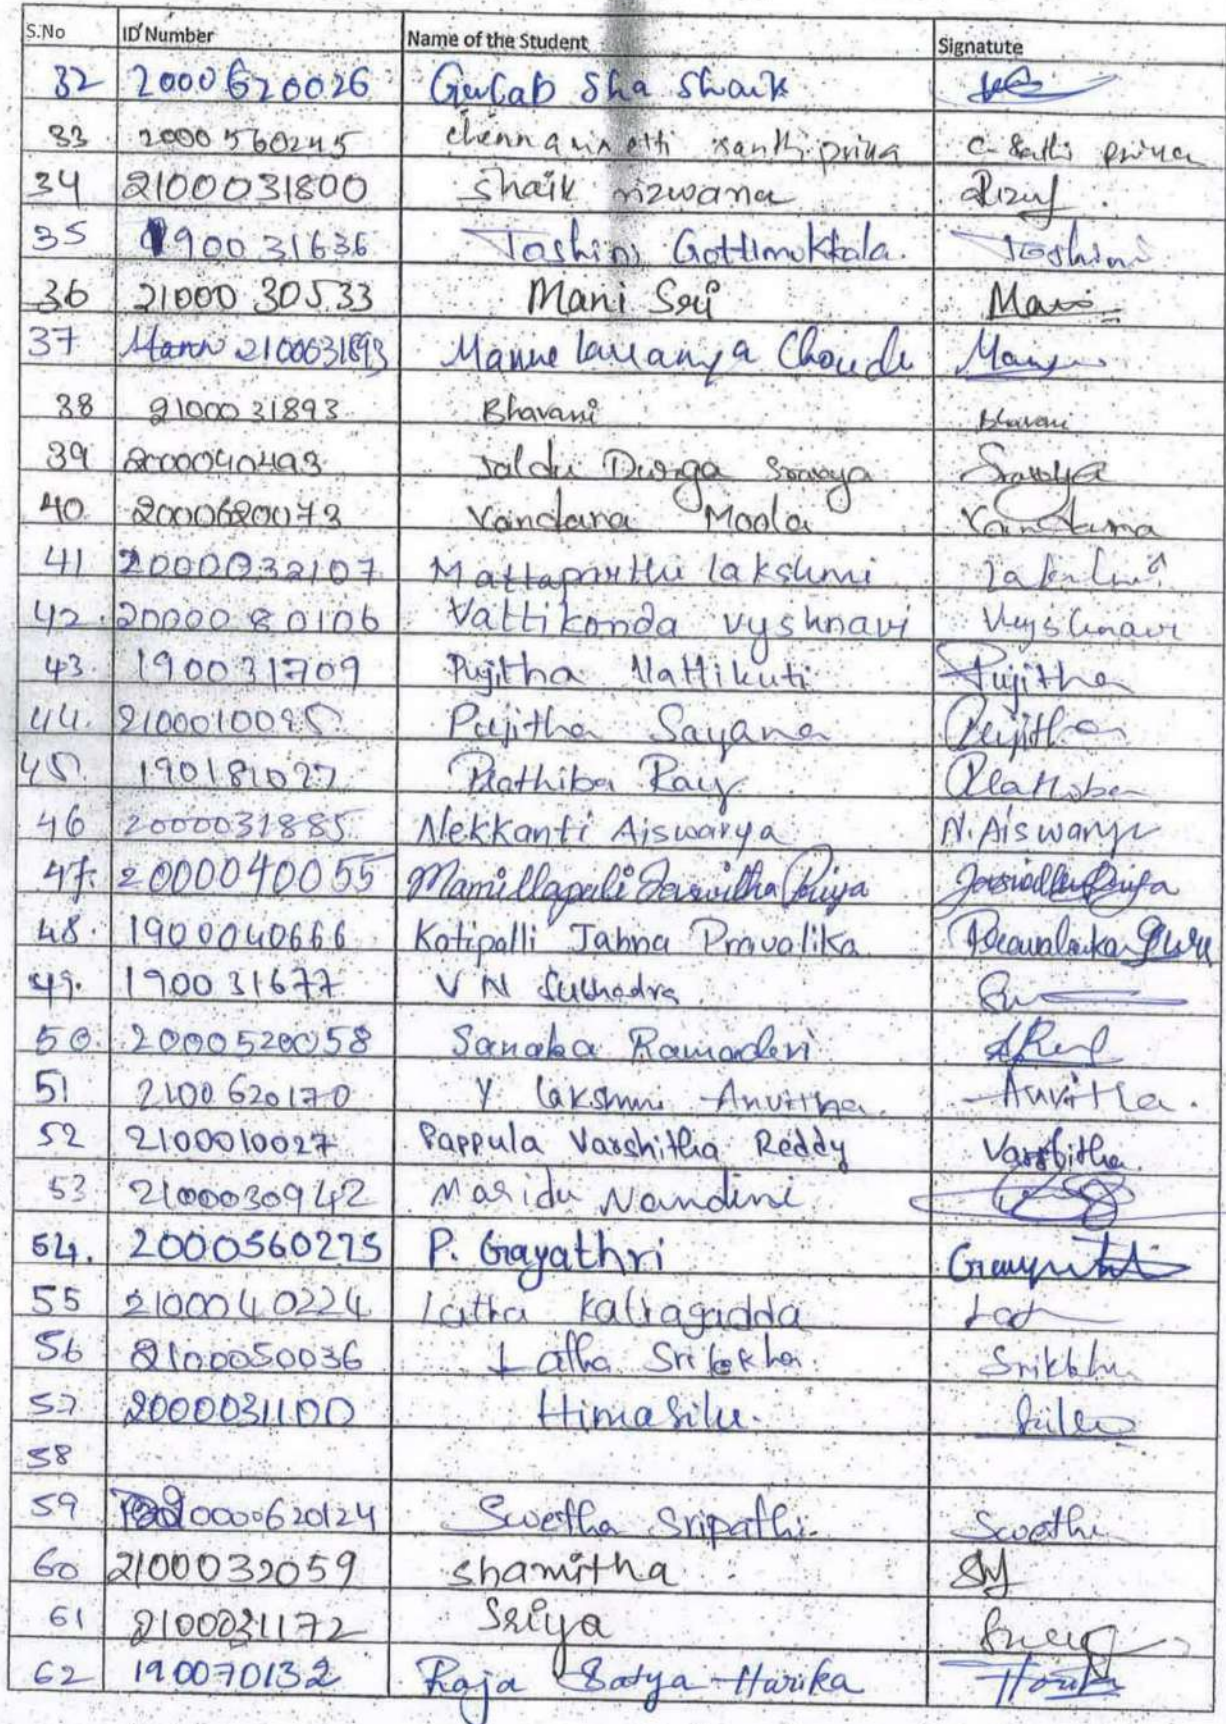 S.No ID Number Name of the Student Signatute
32 2000620026 Gulab Sha Shaik
33 2000560245 priya
34 2100031800 Shaik rizwana
35 190031636 Toshini Gottimukkala. Toshini
36 2100030533 Mani Sri Mani
37 2100031893 Manne Lavanya
38 2100031893 Bhavani Bhavani
39 2000040493 Jaldu Durga Sravya Sravya
40 2000620073 Vandana Moola Vandana
41 2000032107 Mattaparthi lakshmi
42. 2000080106 Vattikonda vyshnavi Vyshnavi
43. 190031709 Pujitha Nattikuti Pujitha
44. 2100010095 Pujitha Sayana Pujitha
45 190181027 Prathiba Ray
46 2000031885 Nekkanti Aiswarya N. Aiswarya
47. 2000040055 Priya
48. 1900040666 Kotipalli Jahna Pravalika
49. 190031677 V N
50. 2000520058 Sanaka Ramadevi
51 2100620170 Y Lakshmi Anvitha. Anvitha.
52 2100010027 Pappula Varshitha Reddy Varshitha
53 2100030942 Maridu Nandini
54. 2000560275 P. Gayathri
55 2100040224 Latha Katragadda
56 2100050036 Latha Srilekha
57 2000031100
58
59 Swetha Sripathi. Swetha
60 2100032059 Shamitha
61 2100031172 Sriya
62 190070132 Raja Satya Harika